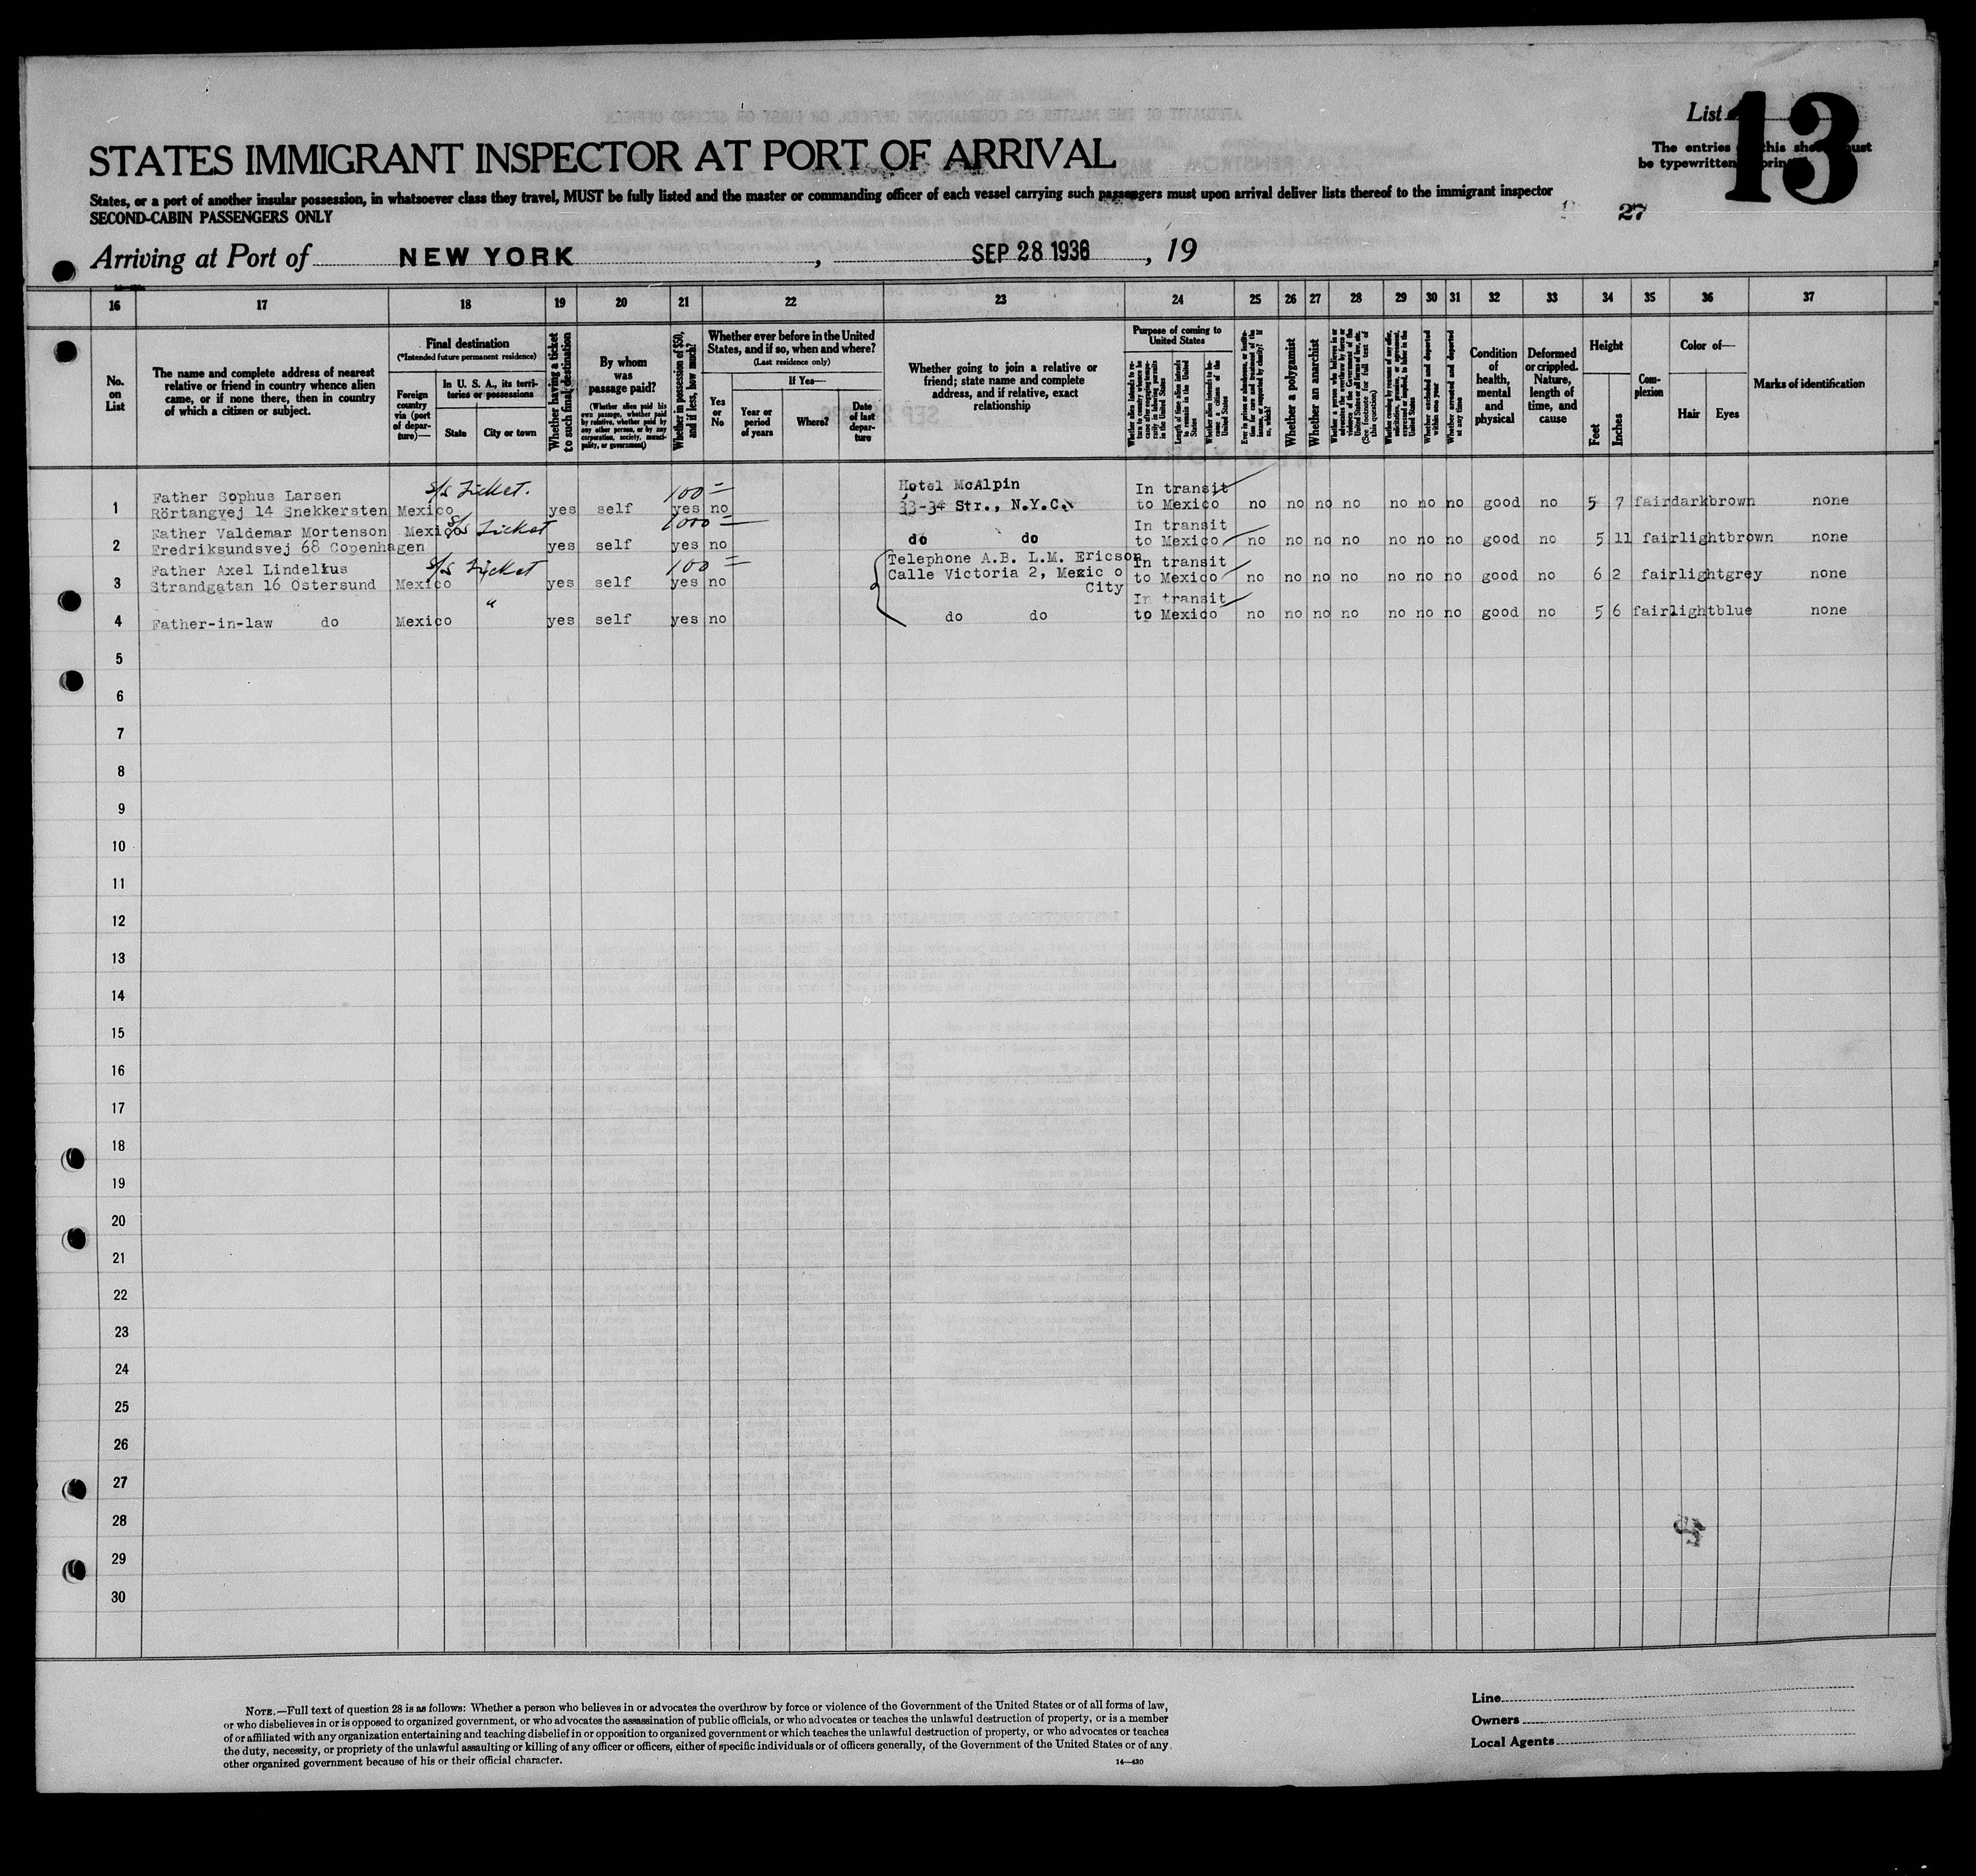 List 13
The entries this sheet must
be typewritten
STATES IMMIGRANT INSPECTOR AT PORT OF ARRIVAL
States, or a port of another insular possession, in whatsoever class they travel, MUST be fully listed and the master or commanding officer of each vessel carrying such passengers must upon arrival deliver lists thereof to the immigrant inspector
SECOND-CABIN PASSENGERS ONLY
27
Arriving at Port of NEW YORK, SEP 28 1936, 19
16 17 18 19 20 21 22 23 24 25 26 27 28 29 30 31 32 33 34 35 36 37
No. on List
The name and complete address of nearest
relative or friend in country whence alien
came, or if none there, then in country
of which a citizen or subject.
Final destination
(*Intended future permanent residence)
Foreign country via (port of departure)—
In U. S. A., its territories or possessions
State
City or town
Whether having a ticket to such final destination
By whom was passage paid?
(Whether alien paid his own passage, whether paid by relative, whether paid by any other person, or by any corporation, society, municipality, or government)
Whether in possession of $50, and if less, how much?
Whether ever before in the United States, and if so, when and where?
(Last residence only)
Yes or No
If Yes—
Year or period of years
Where?
Date of last departure
Whether going to join a relative or
friend; state name and complete
address, and if relative, exact
relationship
Purpose of coming to United States
Length of time alien intends to remain in the United States
Whether alien intends to become a citizen of the United States
Whether a polygamist
Whether an anarchist
(See footnote for full text of this question)
Whether excluded and deported within one year
Whether arrested and deported at any time
Condition of health, mental and physical
Deformed or crippled. Nature, length of time, and cause
Height
Feet
Inches
Complexion
Color of—
Hair
Eyes
Marks of identification
s/s Ticket. 100= Hotel McAlpin In transit
1 Father Sophus Larsen
Rörtangvej 14 Snekkersten Mexico yes self yes no 33-34 Str., N.Y.C. to Mexico no no no no no no no good no 5 7 fair dark brown none
s/s Ticket 1000= In transit
2 Father Valdemar Mortenson Mexico
Fredriksundsvej 68 Copenhagen yes self yes no do do to Mexico no no no no no no no good no 5 11 fair light brown none
s/s Ticket 100= Telephone A.B. L.M. Ericson In transit
3 Father Axel Lindelius
Strandgatan 16 Östersund Mexico yes self yes no Calle Victoria 2, Mexic o City to Mexico no no no no no no no good no 6 2 fair light grey none
" In transit
4 Father-in-law do Mexico yes self yes no do do to Mexico no no no no no no no good no 5 6 fair light blue none
5
6
7
8
9
10
11
12
13
14
15
16
17
18
19
20
21
22
23
24
25
26
27
28
29
30
NOTE.—Full text of question 28 is as follows: Whether a person who believes in or advocates the overthrow by force or violence of the Government of the United States or of all forms of law,
or who disbelieves in or is opposed to organized government, or who advocates the assassination of public officials, or who advocates or teaches the unlawful destruction of property, or is a member
of or affiliated with any organization entertaining and teaching disbelief in or opposition to organized government or which teaches the unlawful destruction of property, or who advocates or teaches
the duty, necessity, or propriety of the unlawful assaulting or killing of any officer or officers, either of specific individuals or of officers generally, of the Government of the United States or of any
other organized government because of his or their official character.
14—430
Line
Owners
Local Agents